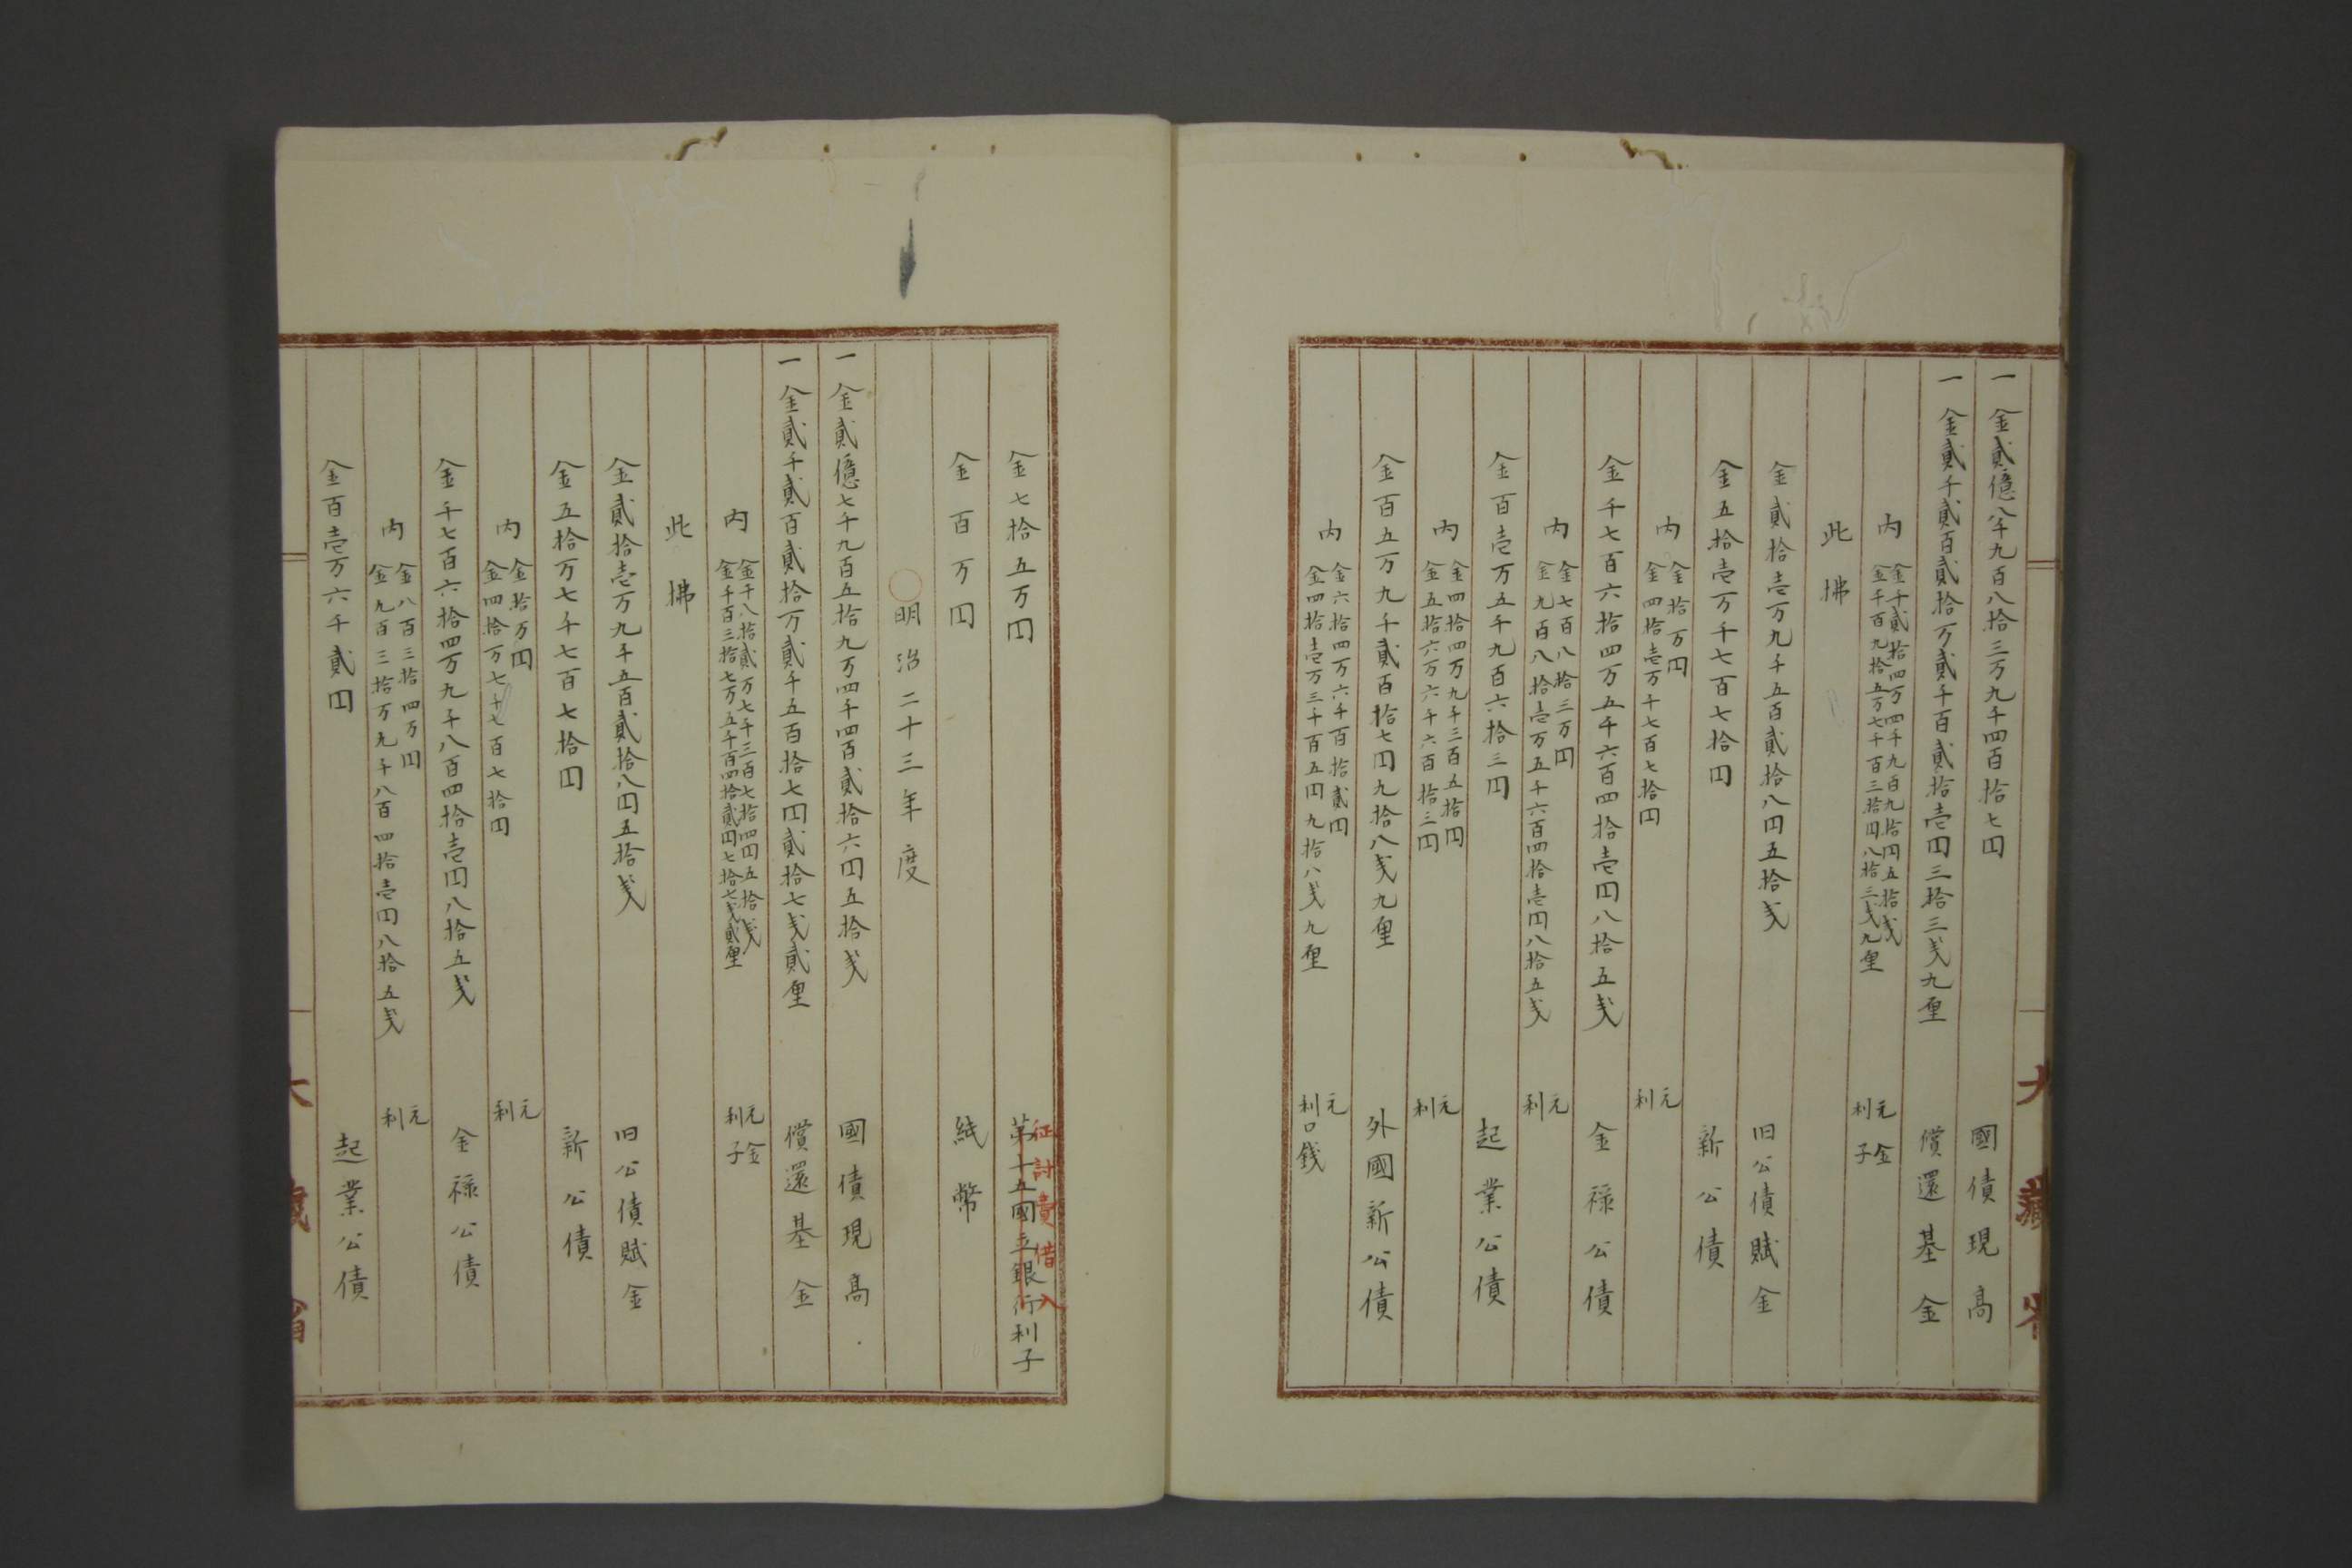 一金貳億八千九百八拾三万九千四百拾七円 國債現高
一金貳千貳百貳拾万貳千百貳拾壱円三拾三戋九厘 償還基金
内
金千貳拾四万四千九百九拾円五拾戋 元金
金千百九拾五万七千百三拾円八拾三戋九厘 利子
此拂
金貳拾壱万九千五百貳拾八円五拾戋 旧公債賦金
金五拾壱万千七百七拾円 新公債
内
金拾万円 元
金四拾壱万千七百七拾円 利
金千七百六拾四万五千六百四拾壱円八拾五戋 金祿公債
内
金七百八拾三万円 元
金九百八拾壱万五千六百四拾壱円八拾五戋 利
金百壱万五千九百六拾三円 起業公債
内
金四拾四万九千三百五拾円 元
金五拾六万六千六百拾三円 利
金百五万九千貳百拾七円九拾八戋九厘 外國新公債
内
金六拾四万六千百拾貳円 元
金四拾壱万三千百五円九拾八戋九厘 利口錢
大藏省
金七拾五万円 第十五國立銀行利子
征討費借入
金百万円 紙幣
○明治二十三年度
一金貳億七千九百五拾九万四千四百貳拾六円五拾戋 國債現高
一金貳千貳百貳拾万貳千五百拾七円貳拾七戋貳厘 償還基金
内
金千八拾貳万七千三百七拾四円五拾戋 元金
金千百三拾七万五千百四拾貳円七拾七戋貳厘 利子
此拂
金貳拾壱万九千五百貳拾八円五拾戋 旧公債賦金
金五拾万七千七百七拾円 新公債
内
金拾万円 元
金四拾万七千七百七拾円 利
金千七百六拾四万九千八百四拾壱円八拾五戋 金祿公債
内
金八百三拾四万円 元
金九百三拾万九千八百四拾壱円八拾五戋 利
金百壱万六千貳円 起業公債
大藏省